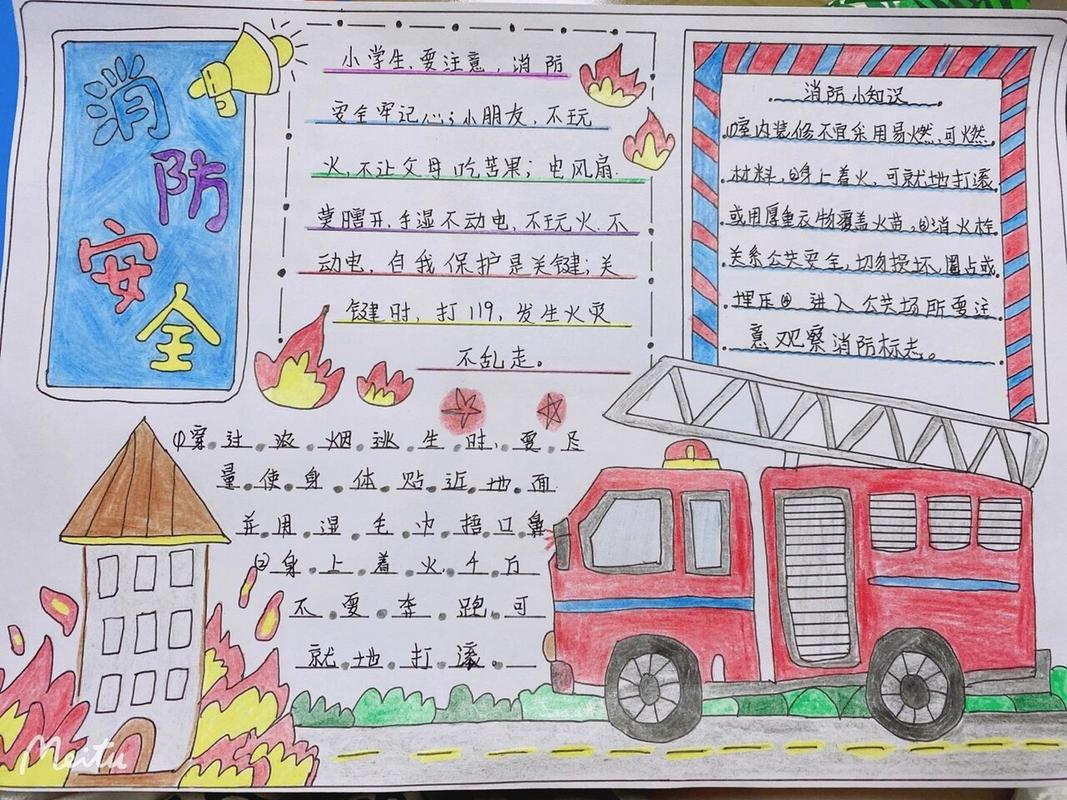 消
防
安
全
小学生,要注意,消防
安全牢记心;小朋友,不玩
火,不让父母吃苦果;电风扇.
莫瞎开,手湿不动电,不玩火.不
动电,自我保护是关键;关
键时,打119,发生火灾
不乱走。
消防小知识
①室内装修不宜采用易燃,可燃
材料,②身上着火,可就地打滚
或用厚重衣物覆盖火苗,③消火栓
关系公共安全,切勿损坏,圈占或
埋压④进入公共场所要注
意观察消防标志。
①穿过浓烟逃生时,要尽
量使身体贴近地面.
并用湿毛巾捂口鼻
②身上着火,千万
不要奔跑,可
就地打滚。
Meitu